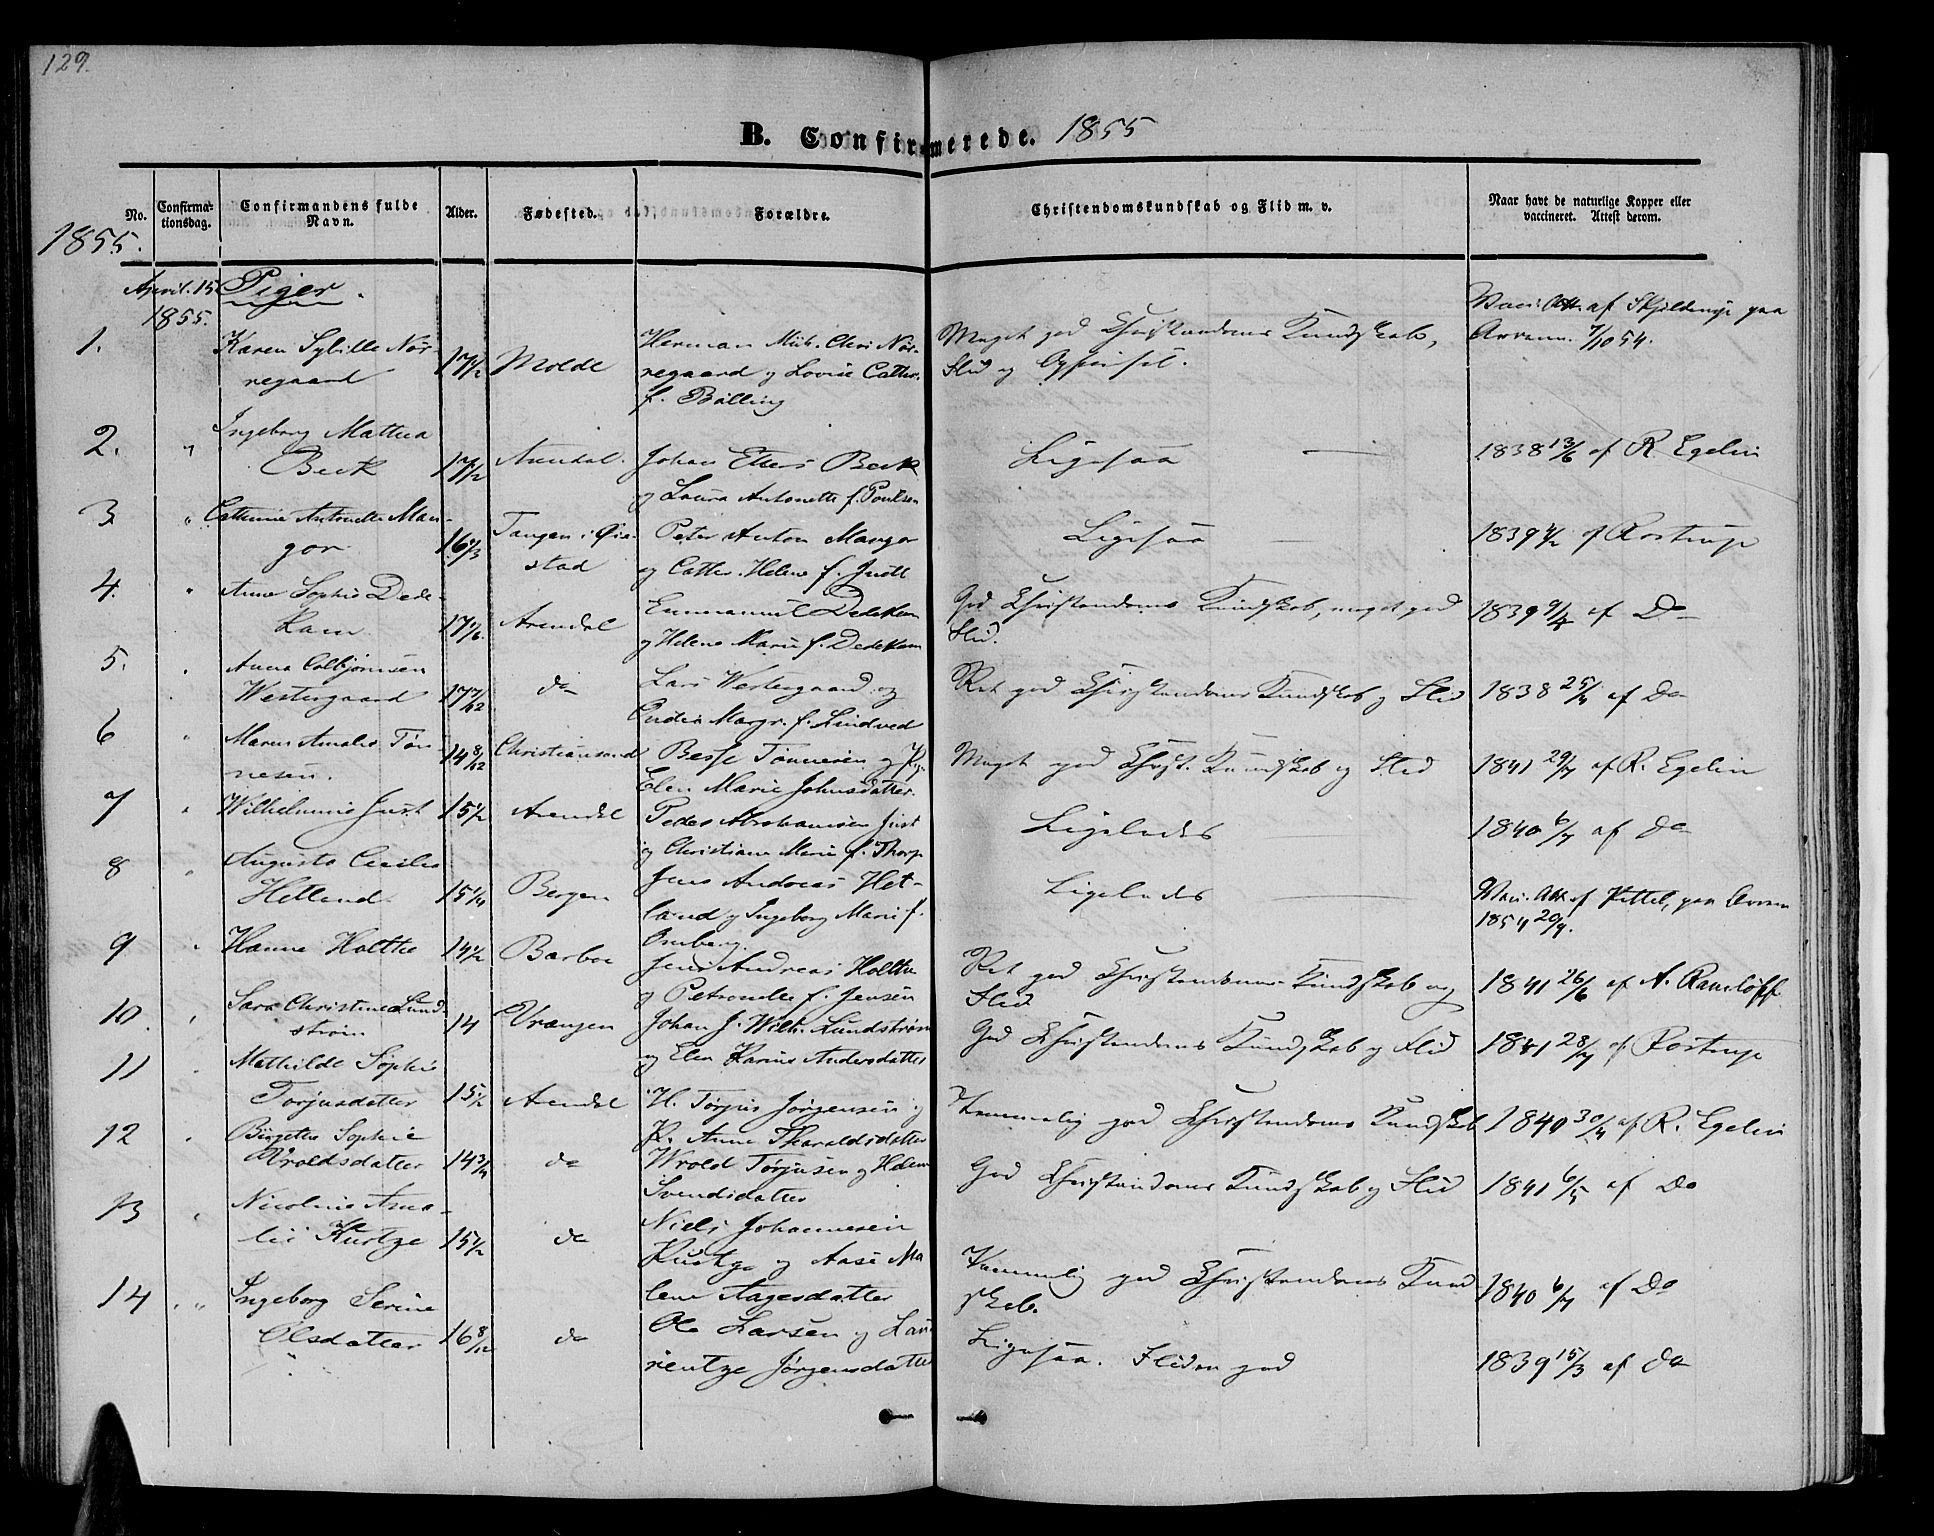 129.
B. Confirmerede. 1855
No.
Confirma-
tionsdag.
Confirmandens fulde
Navn.
Alder.
Fødested.
Forældre.
Christendomskundskab og Flid m. v.
Naar havt de naturlige Kopper eller
vaccineret. Attest derom.
1855.
April. 15
1855.
Piger.
1.
Karen Sybille Nör-
regaard
17 1/2
Molde
Herman Mich. Chri Nör-
regaard og Lovise Cathr.
f. Bölling
Meget god Christendoms Kundskab,
Flid og Opførsel.
Vacc. Att. af Skjelderup paa
7/10 54.
2.
"
Ingeborg Mathea
Beck
17 1/2
Arendal.
Johan Ellers Beck
og Laura Antonette f. Poulsen
Ligesaa
1838 13/6 af R. Egelin
3
"
Cathrine Antonette Man-
gor
16 1/3
Tangen i Øie-
stad
Peter Anton Mangor
og Cathr. Helene f. Juell
Ligesaa
1839 4/2 af Rostrup
4.
"
Anne Sophie Dede-
kam
17 1/6
Arendal
Emmanuel Dedekam
og Helene Marie f. Dedekam
God Christendoms Kundskab, meget god
Flid.
1839 9/4 af Do
5.
"
Anna Colbjørnsen
Westergaard
17 7/12
do
Lars Westergaard og
Margr. f. Lindved
Ret god Christendoms Kundskab og Flid
1838 25/4 af Do
6
"
Maren Amalie Tön-
nesen.
14 8/12
Christiansand
Besse Tönnesen og
Elen Marie Johnsdatter.
Meget god Christ. Kundskab og Flid
1841 29/7 af R. Egelin
7
"
Wilhelmine Just
15 1/2
Arendal
Peder Abrahamsen Just
og Christiane Marie f. Thorp
Ligeledes
1840 6/7 af do
8
"
Augusta Cecilie
Helland.
15 1/4
Bergen
Jens Andreas Het-
land og Ingeborg Marie f.
Ligeledes
Vacc. Att. af Kittel, paa
1854 29/9.
9
"
Hanne Holthe
14 1/2
Barboe
Jens Andreas Holthe
og Petronelle f. Jensen
Ret god Christendoms Kundskab og
Flid
1841 26/6 af A. Ramløff
10.
"
Sara Christine Lund-
ström
14
Vrængen
Johan J. Wilh. Lundström
og Elen Karine Andersdatter
God Christendoms Kundskab og Flid
1841 28/7 af Rostrup
11
"
Mathilde Sophie
Torjusdatter
15 1/2
Arendal
H. Törjus Jörgensen og
K. Anne Tharaldsdatter
Temmelig god Christendoms Kundskab
1840 30/4 af R. Egelin
12
"
Birgethe Sophie
Wroldsdatter
14 3/4
do
Wrold Törjusen og Helene
Svendsdatter
God Christendoms Kundskab og Flid
1841 6/5 af Do
13
"
Nicoline Ama-
lie Kurtze
15 1/2
do
Niels Johannesen
Kurtze og Aase Ma
lene Aagesdatter
Temmelig god Christendoms Kund
skab.
1840 6/7 af Do
14
"
Ingeborg Serine
Olsdatter
16 8/12
do
Ole Larsen og Lau
rentze Jörgensdatter
Ligesaa. Fliden god
1839 15/3 af do